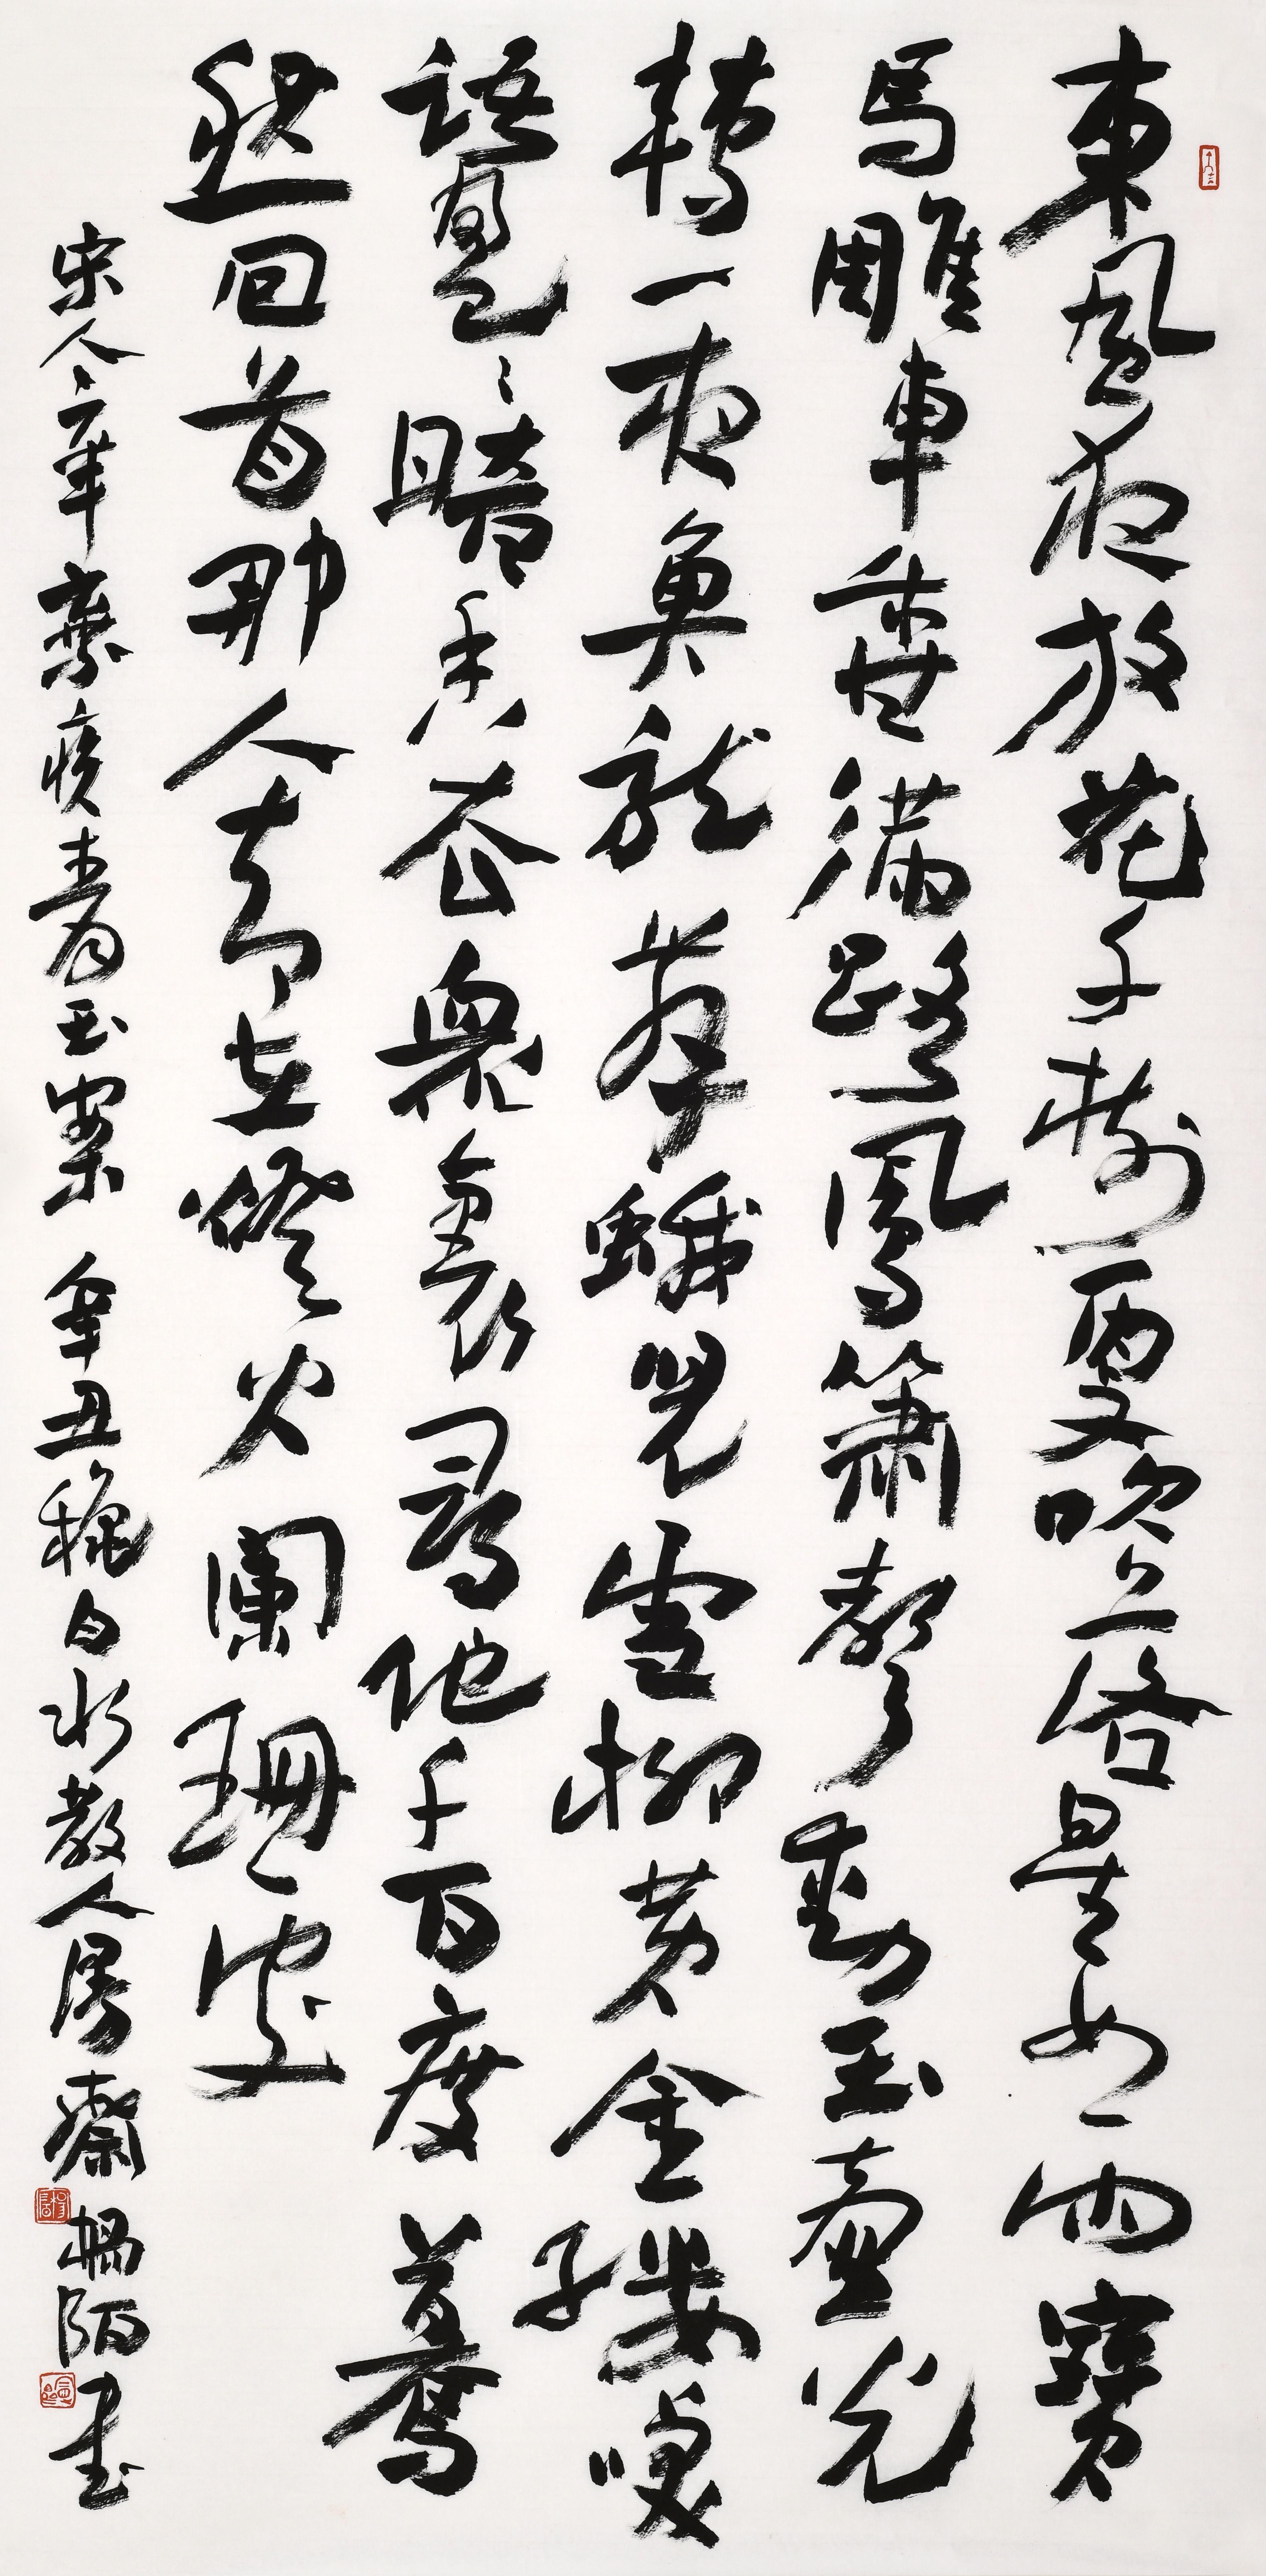 東風夜放花千樹更吹落星如雨寶
馬雕車香滿路鳳簫聲動玉壺光
轉一夜魚龍舞蛾兒雪柳黃金縷笑
語盈々暗香去衆裏尋他千百度驀
然回首那人却在燈火闌珊處
宋人辛棄疾青玉案 辛丑穐白水散人齋楊陌書